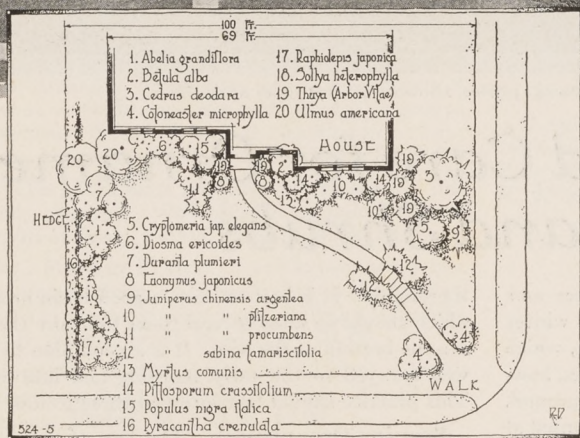 100 Ft.
69 Ft.
1. Abelia grandiflora
2. Betula alba
3. Cedrus deodara
4. Cotoneaster microphylla
17. Raphiolepis japonica
18. Sollya heterophylla
19 Thuya (Arbor Vitae)
20 Ulmus americana
HOUSE
HEDGE
5. Cryptomeria jap. elegans
6. Diosma ericoides
7. Duranta plumieri
8 Euonymus japonicus
9 Juniperus chinensis argentea
10 " " pfitzeriana
11 " " procumbens
12 " sabina tamariscifolia
13 Myrtus comunis
14 Pittosporum crassifolium
15 Populus nigra italica
16 Pyracantha crenulata
WALK
524-5
20
20
6
15
11
19
8
19
8
7
14
13
10
14
10
19
19
19
3
5
9
1
16
18
17
12
12
4
4